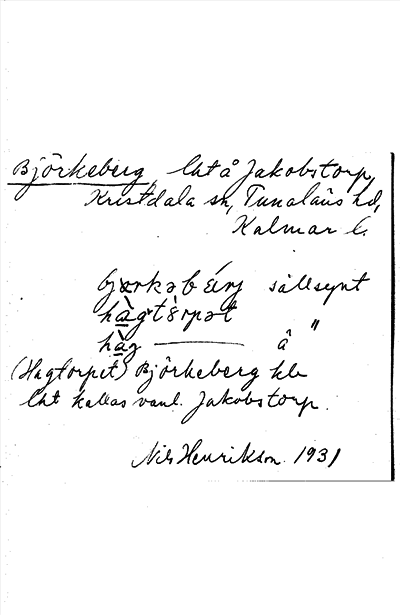 Björkeberg, lht å Jakobstorp,
Kristdala sn, Tunaläns hd,
Kalmar l.
bjørkəbærj sällsynt
hàgtòrpət "
hàg ——— å
(Hagtorpet) Björkeberg kle
lht kallas vanl. Jakobstorp.
Nils Henrikson 1931